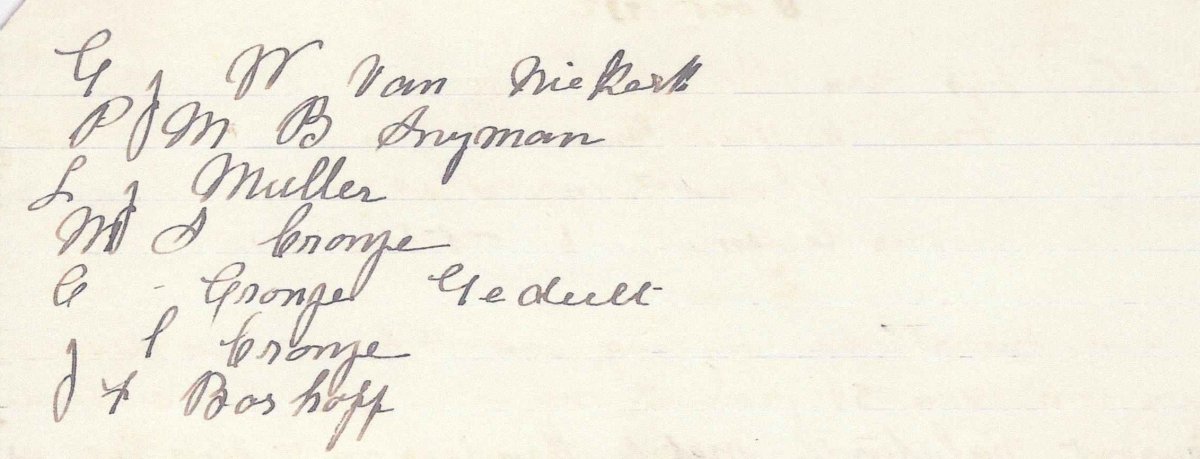 G J W Van Niekerk
P J M B Snyman
L J Muller
M S Cronje
C - Cronje Gedult
J P Cronje
J F Boshoff